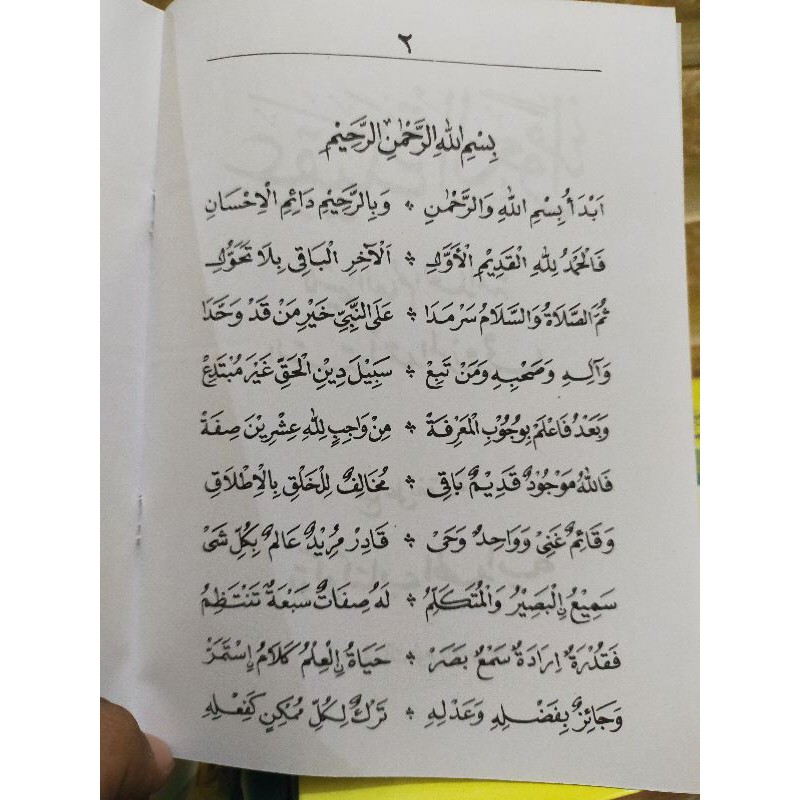 ٢
بِسْمِ اللهِ الرَّحْمٰنِ الرَّحِيْمِ
اَبْدَأُ بِسْمِ اللهِ وَالرَّحْمٰنِ * وَبِالرَّحِيْمِ دَائِمِ الْاِحْسَانِ
فَالْحَمْدُ لِلّٰهِ الْقَدِيْمِ الْأَوَّلِ * اَلْآخِرِ الْبَاقِى بِلَا تَحَوُّلِ
ثُمَّ الصَّلَاةُ وَالسَّلَامُ سَرْمَدَا * عَلَى النَّبِيِّ خَيْرِ مَنْ قَدْ وَحَّدَا
وَآلِهِ وَصَحْبِهِ وَمَنْ تَبِعْ * سَبِيْلَ دِيْنِ الْحَقِّ غَيْرَ مُبْتَدِعْ
وَبَعْدُ فَاعْلَمْ بِوُجُوْبِ الْمَعْرِفَةْ * مِنْ وَاجِبٍ لِلّٰهِ عِشْرِيْنَ صِفَةْ
فَاللهُ مَوْجُوْدٌ قَدِيْمٌ بَاقِى * مُخَالِفٌ لِلْخَلْقِ بِالْاِطْلَاقِ
وَقَائِمٌ غَنِىْ وَوَاحِدٌ وَحَىْ * قَادِرْ مُرِيْدٌ عَالِمٌ بِكُلِّ شَىْ
سَمِيْعٌ ۢالْبَصِيْرُ وَالْمُتَكَلِّمُ * لَهُ صِفَاتٌ سَبْعَةٌ تَنْتَظِمُ
فَقُدْرَةٌ اِرَادَةٌ سَمْعٌ بَصَرْ * حَيَاةٌ ۢالْعِلْمُ كَلَامٌ اِسْتَمَرْ
وَجَائِزٌ بِفَضْلِهِ وَعَدْلِهِ * تَرْكٌ لِكُلِّ مُمْكِنٍ كَفِعْلِهِ